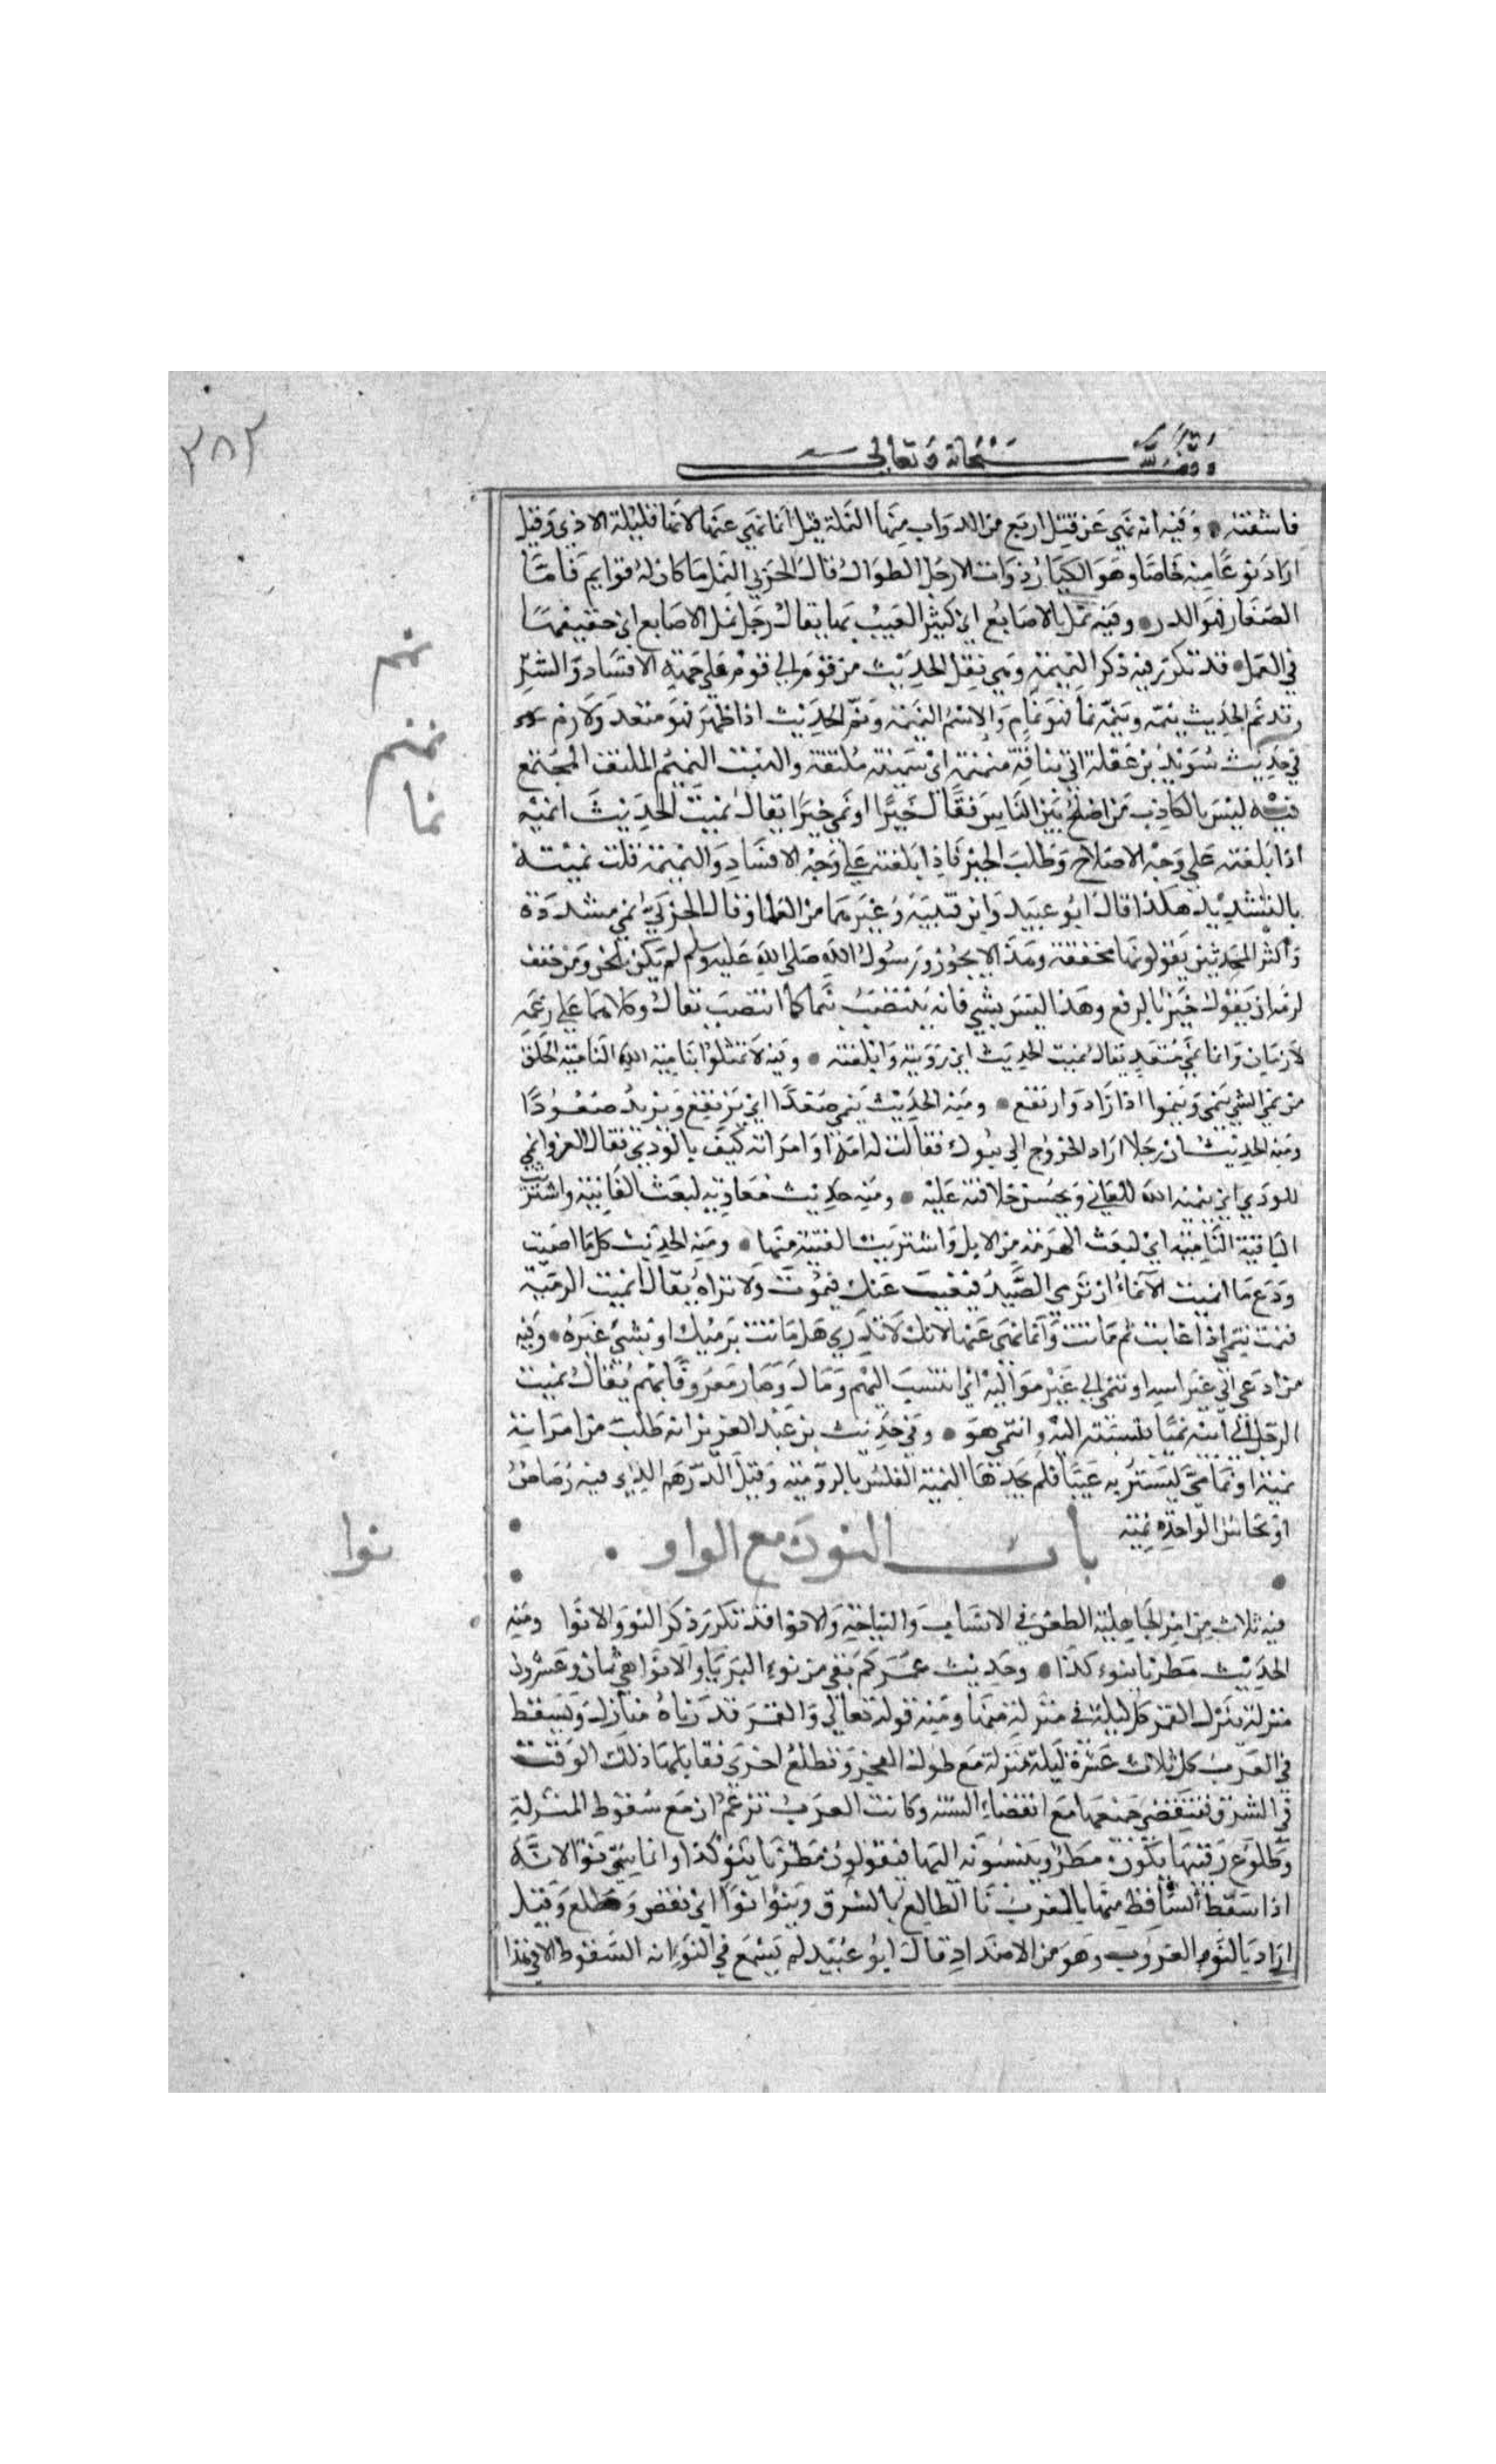 ٣٨٢
وقف لله سبحانه وتعالى
فاشفته • وفيه انه نهي عن قتل اربع من الدواب منها النملة قيل انما نهي عنها لانها قليلة الاذي وقيل
اراد نوعا منه خاصا وهو الكبار ذوات الارجل الطوال قال الحربي النمل ما كان له قوايم فاما
الصغار فهو الدر • وفيه نمل بالاصابع اي كثير العبيث بها يقال رجل نمل الاصابع اي خفيفها
نمم
في العمل • قد تكرر فيه ذكر النميمة وهي نقل الحديث من قوم الي قوم علي جهة الافساد والشر
وقد نم الحديث ينمه وينمه نما فهو نمام والاسم النميمة ونم الحديث اذا ظهر فهو متعد ولازم
نمنم
في حديث سويد بن غفلة اتي بناقة منمنمة اي سمينة ملتفة والنبت النمنم الملتف المجتمع
نما
فيه ليس بالكاذب من اصلح بين الناس فقال خيرا او نمي خيرا يقال نميت الحديث انميه
اذا بلغته علي وجه الاصلاح وطلب الخير فاذا بلغته علي وجه الافساد والنميمة قلت نميته
بالتشديد هكذا قال ابو عبيد وابن قتيبه وغيرهما من العلما وقال الحربي نمي مشددة
واكثر المحدثين يقولونها مخففة وهذا لا يجوز ورسول الله صلى الله عليه وسلم لم يكن يلحن ومن خفف
لزمه ان يقول خير بالرفع وهذا ليس بشي فانه ينتصب بنما كما انتصب بقال وكلاهما علي زعمه
لازمان وانما نمي متعد يقال نميت الحديث اي رويته وابلغته • وفيه لا تمثلوا بنامية الله النامية الخلق
من نمي الشي ينمي وينموا اذا زاد وارتفع • ومنه الحديث ينمي صعدا اي يرتفع ويزيد صعودا
ومنه الحديث ان رجلا اراد الخروج الي تبوك فقالت له امه او امراته كيف بالودي فقال الغزو انمي
للودي اي ينميه الله للغازي ويحسن خلافته عليه • ومنه حديث معاويه لبعت الفانية واشتريت
النامية اي لبعت الهرمة من الابل واشتريت الفتية منها • ومنه الحديث كل ما اصميت
ودع ما انميت الانماء ان ترمي الصيد فيغيب عنك فيموت ولا تراه يقال انميت الرمية
فنمت تنمي اذا غابت ثم ماتت وانما نهي عنها لانك لا تدري هل ماتت برميك او بشي غيره • وفيه
من ادعي الي غير ابيه او انتمي الي غير مواليه اي انتسب اليهم ومال وصار معروفا بهم يقال نميت
الرجل الي ابيه نميا نسبته اليه وانتمي هو • وفي حديث بن عبد العزيز انه طلب من امراته
نمية او نمامي ليشتري به عنبا فلم يجدها النمية الفلس بالرومية وقيل الدرهم الذي فيه رصاص
او نحاس الواحدة نمية
باب النون مع الواو
نوا
فيه ثلاث من امر الجاهلية الطعن في الانساب والنياحة والانوا قد تكرر ذكر النو والانوا ومنه
الحديث مطرنا بنوء كذا • وحديث عمر كم بقي من نوء الثريا والانوا هي ثمان وعشرون
منزلة ينزل القمر كل ليلة في منزلة منها ومنه قوله تعالي والقمر قدرناه منازل ويسقط
في الغرب كل ثلاث عشرة ليلة منزلة مع طلوع الفجر وتطلع اخري مقابلها ذلك الوقت
في الشرق فتنقضي جميعها مع انقضاء السنه وكانت العرب تزعم ان مع سقوط المنزلة
وطلوع رقيبها يكون مطر وينسبونه اليها فيقولون مطرنا بنو كذا وانما سمي نوا لانه
اذا سقط الساقط منها بالمغرب نا الطالع بالشرق وينوا نوا اي نهض وطلع وقيل
اراد بالنوء الغروب وهو من الاضداد قال ابو عبيد لم يسمع في النوء انه السقوط الا في هذا